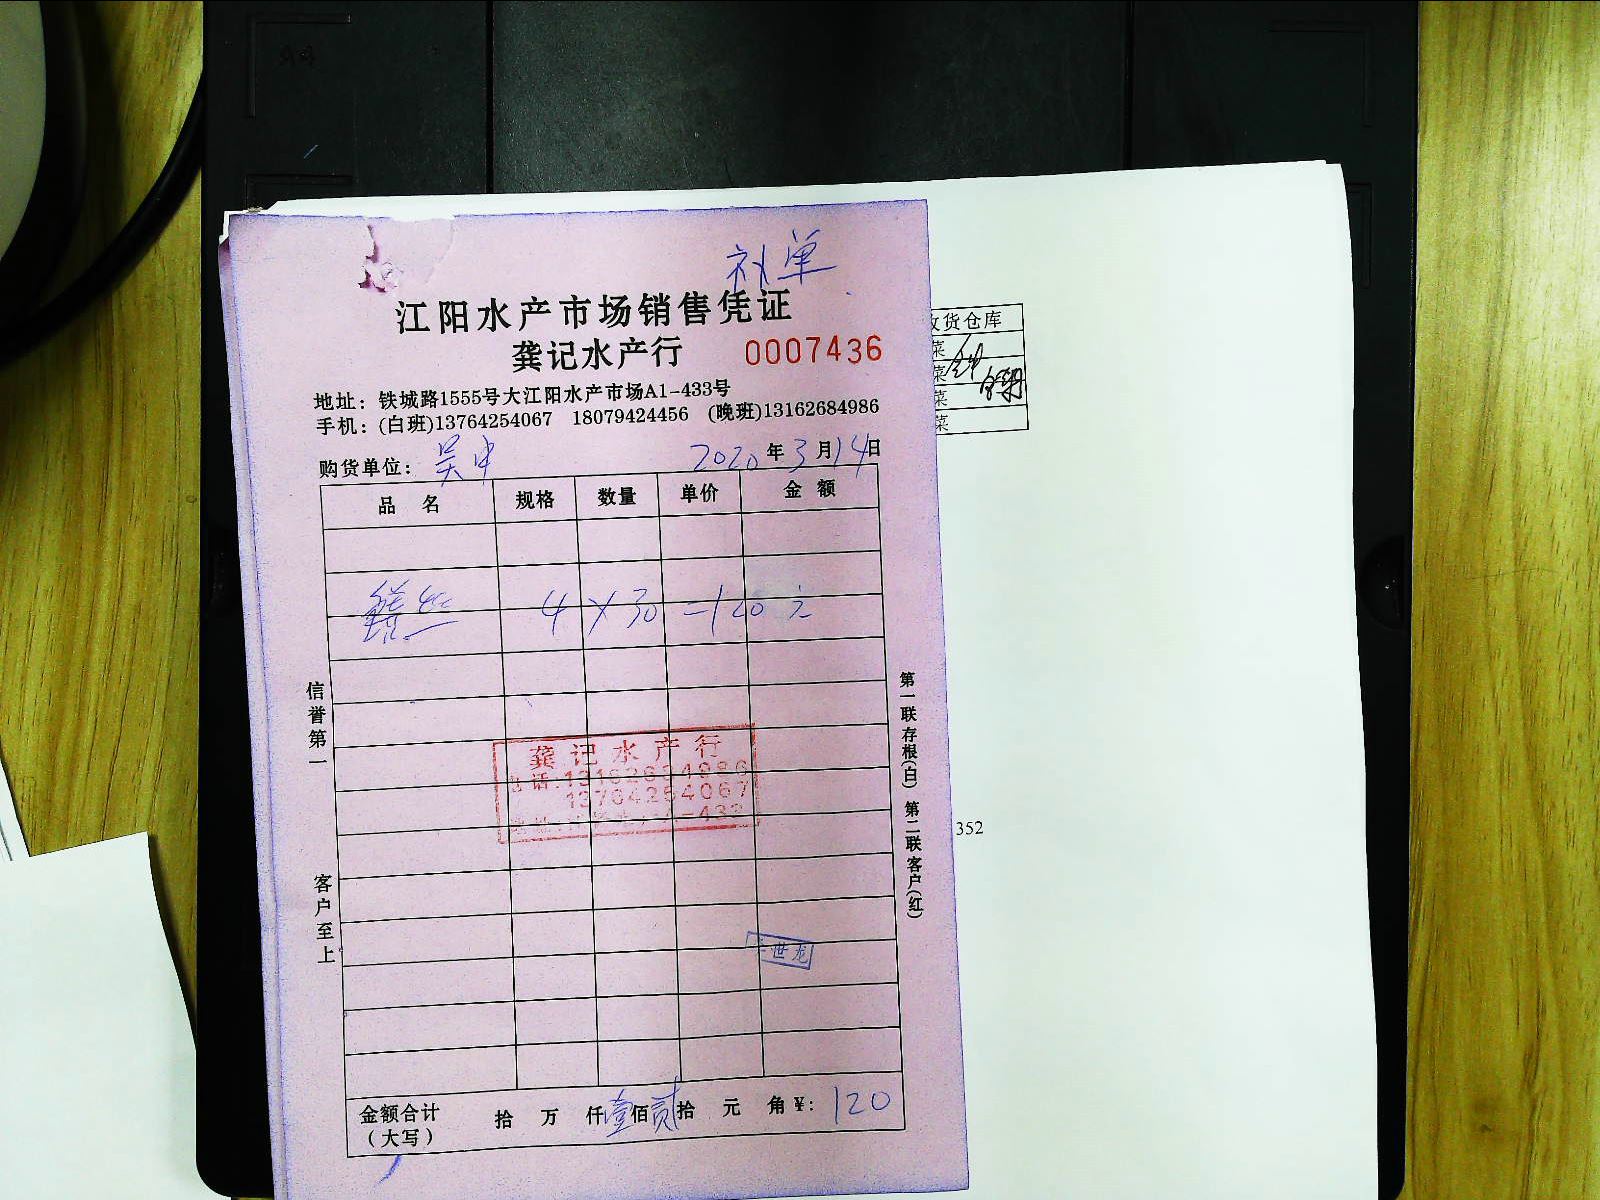 补单
江阳水产市场销售凭证
龚记水产行 0007436
地址：铁城路1555号大江阳水产市场A1-433号
手机：(白班)13764254067 18079424456 (晚班)13162684986
购货单位：吴中 2020年3月14日
品名 规格 数量 单价 金额
鳝丝 4×30=120元
信誉第一
客户至上
龚记水产行
电话:13162684986
13764254067
世龙
第一联存根(白) 第二联客户(红)
金额合计（大写） 拾 万 仟壹佰贰拾 元 角¥:120
收货仓库
菜
菜
菜
菜
352